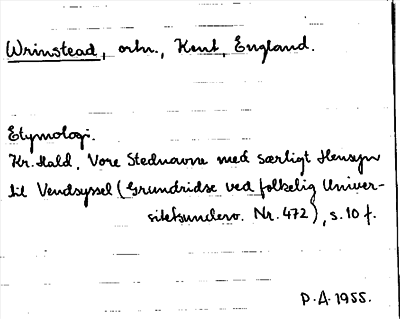 Wrinstead, orln., Kent, England.
Etymologi.
Kr. Hald, Vore Stednavne med særligt Hensyn
til Vendsyssel (Grundridse ved folkelig Univer-
sitetsunderv. Nr. 472), s. 10 f.
P.A. 1955.